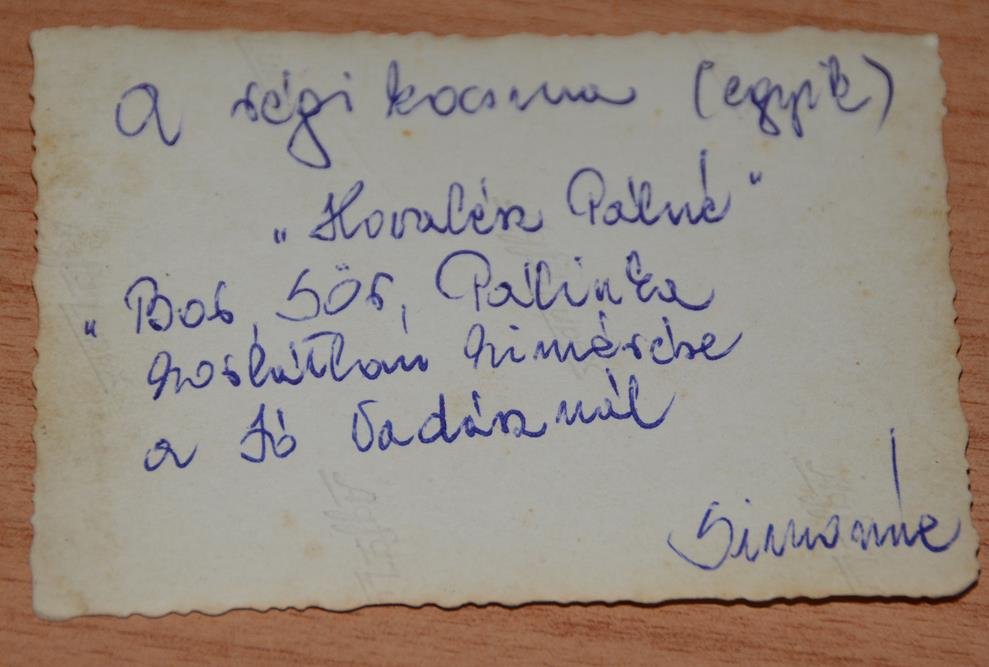 A régi kocsma (egyik)
„Kovalész Pálné"
„Bor, Sör, Pálinka
korlátlan kimérése
a Jó Vadásznál
Simonné